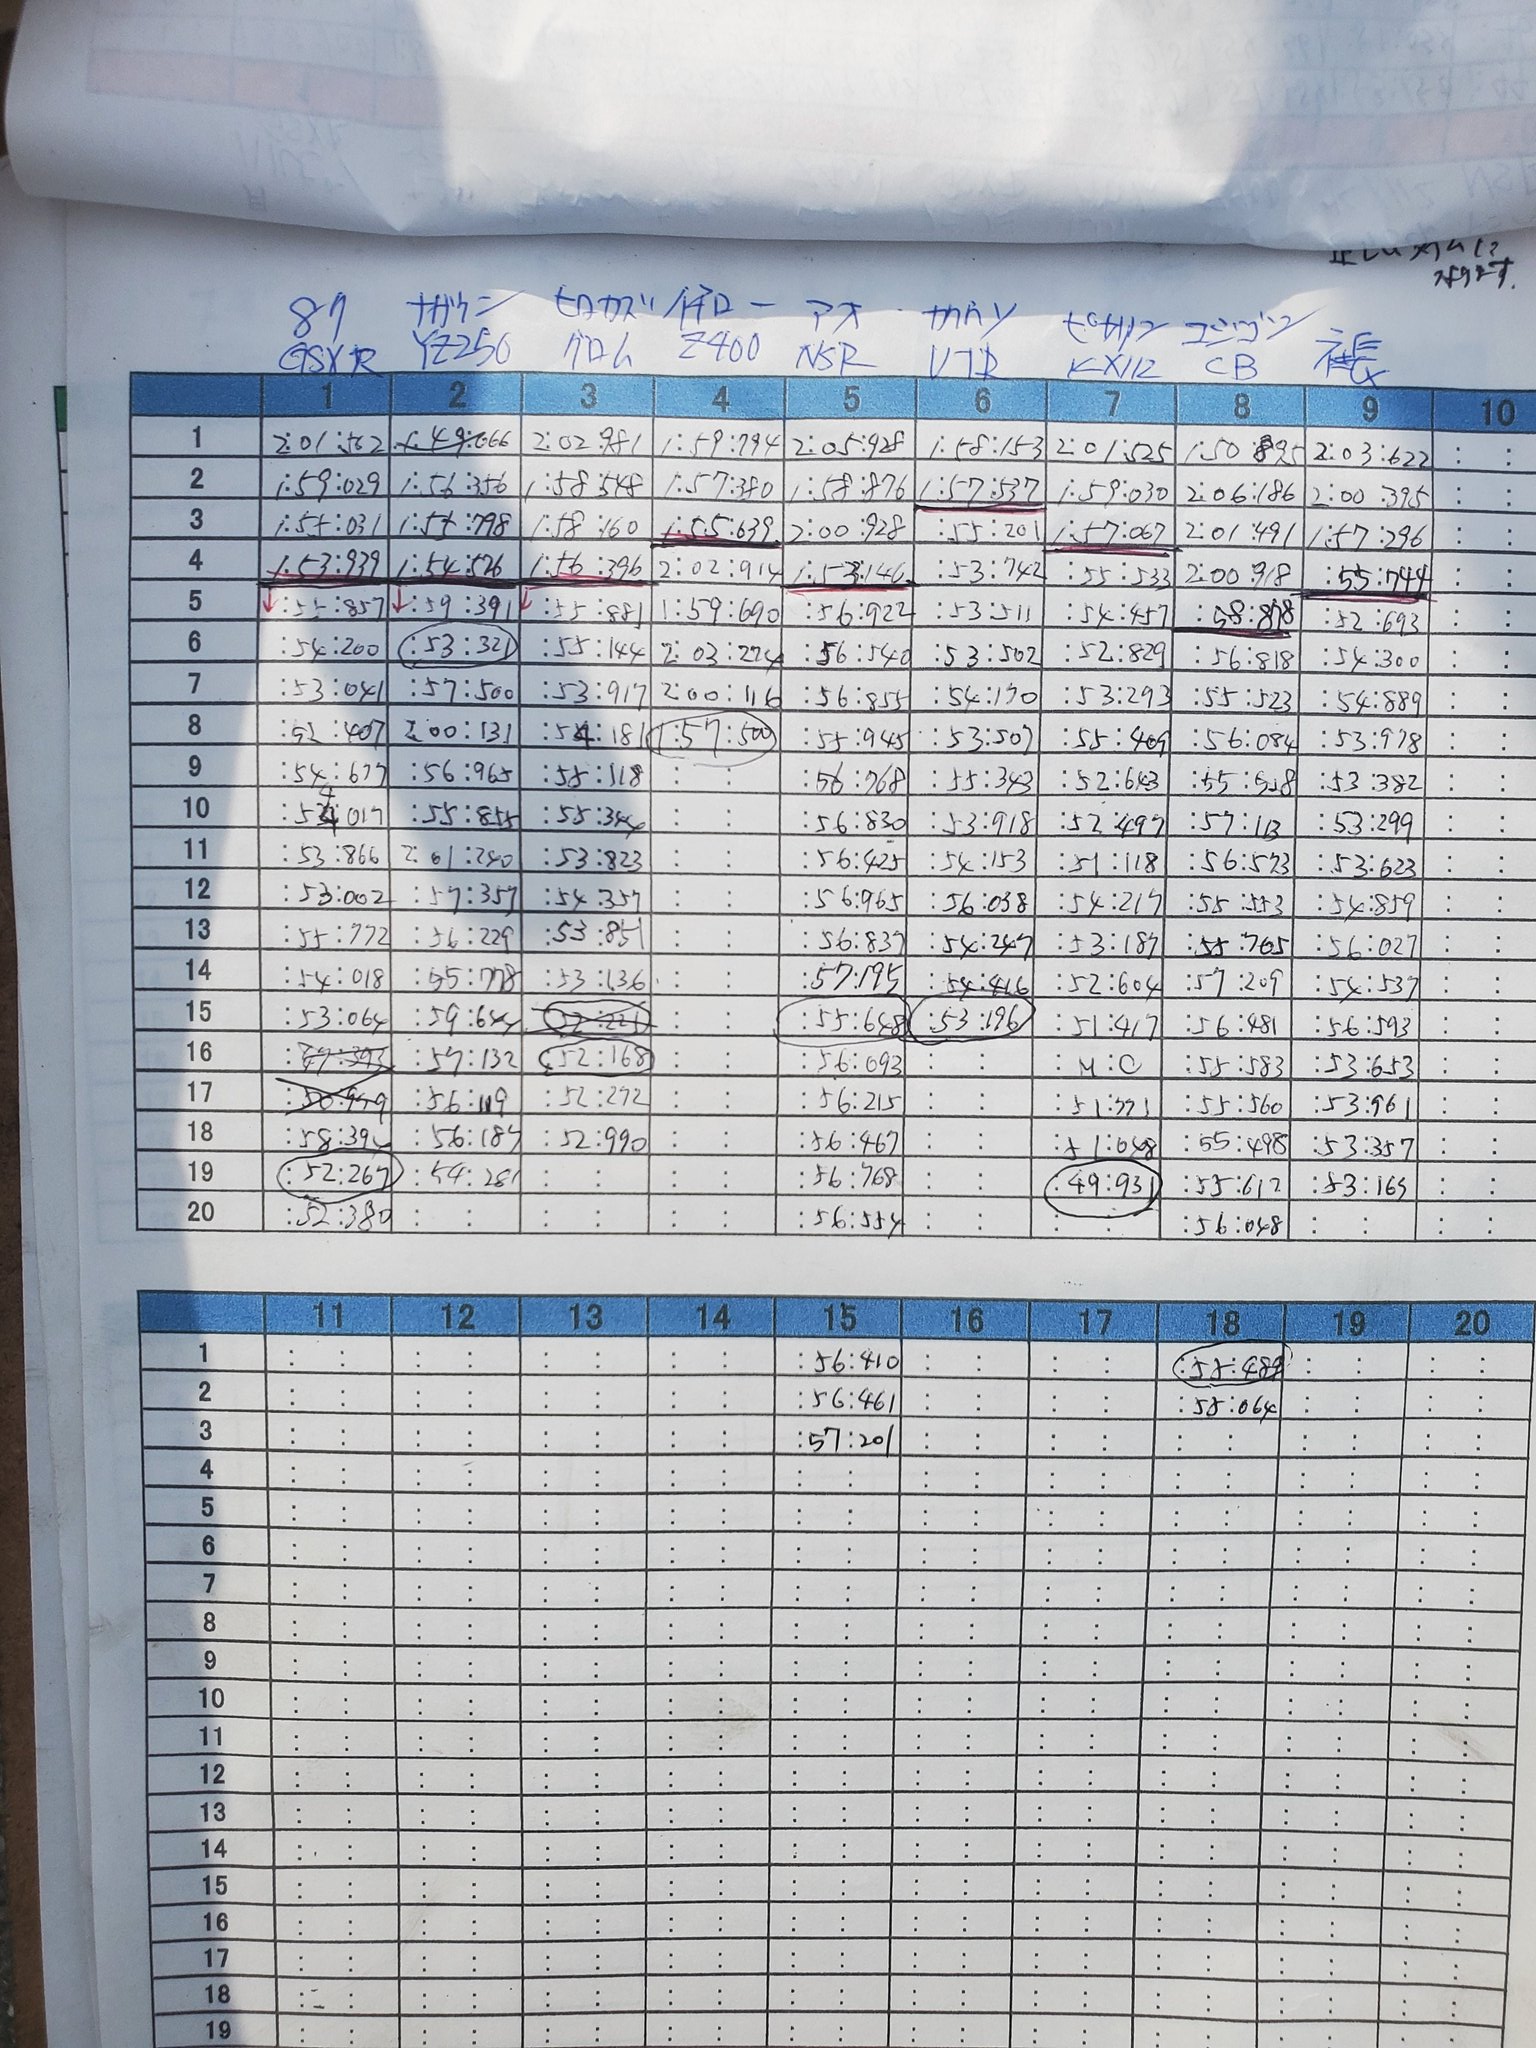 なります。
87 ナガウン ヒロカズ アオ コンゴン 社長
GSXR YZ250 グロム Z400 NSR VTR CB
1 2 3 4 5 6 7 8 9 10
1 2:01:562 1:49:066 2:02:981 1:59:794 2:05:928 1:58:153 2:01:525 1:50:895 2:03:622
2 1:59:029 1:56:356 1:58:548 1:57:380 1:58:876 1:57:537 1:59:030 2:06:186 2:00:395
3 1:55:031 1:55:798 1:58:160 1:55:639 2:00:928 :55:201 1:57:067 2:01:491 1:57:296
4 1:53:939 1:54:526 1:56:396 2:02:914 1:53:146 :53:742 :55:533 2:00:918 :55:744
5 :55:857 :59:391 :55:881 1:59:690 :56:922 :53:511 :54:457 :58:878 :52:693
6 :54:200 :53:321 :55:144 2:03:224 :56:540 :53:502 :52:829 :56:818 :54:300
7 :53:041 :57:500 :53:917 2:00:116 :56:855 :54:170 :53:293 :55:523 :54:889
8 :52:407 2:00:131 :54:181 1:57:500 :55:945 :53:507 :55:409 :56:084 :53:978
9 :54:677 :56:965 :55:118 : : :56:768 :55:343 :52:643 :55:558 :53:382
10 :54:017 :55:855 :55:344 : : :56:830 :53:918 :52:497 :57:113 :53:299
11 :53:866 2:01:240 :53:823 : : :56:425 :54:153 :51:118 :56:573 :53:623
12 :53:002 :57:357 :54:357 : : :56:965 :56:038 :54:217 :55:553 :54:859
13 :55:772 :56:229 :53:851 : : :56:837 :54:247 :53:187 :55:765 :56:027
14 :54:018 :55:778 :53:136 : : :57:195 :54:416 :52:604 :57:209 :54:537
15 :53:064 :59:644 :52:221 : : :55:648 :53:196 :51:417 :56:481 :56:593
16 :49:393 :57:132 :52:168 : : :56:093 : : M:C :55:583 :53:653
17 :50:949 :56:119 :52:272 : : :56:215 : : :51:771 :55:560 :53:961
18 :58:394 :56:187 :52:990 : : :56:467 : : :51:048 :55:498 :53:357
19 :52:267 :54:281 : : : : :56:768 : : :49:931 :55:612 :53:165
20 :52:380 : : : : : : :56:554 : : : : :56:048 : :
11 12 13 14 15 16 17 18 19 20
1 :56:410 :55:489
2 :56:461 :55:064
3 :57:201
4
5
6
7
8
9
10
11
12
13
14
15
16
17
18
19